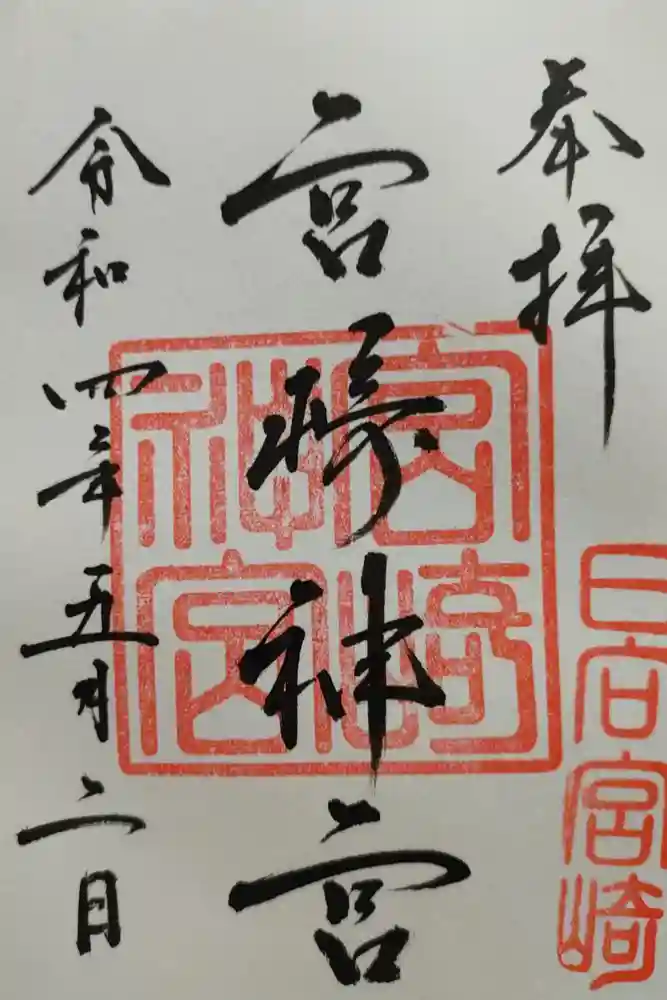 奉拝
日向宮崎
宮崎神宮
宮崎神宮
令和四年五月二日